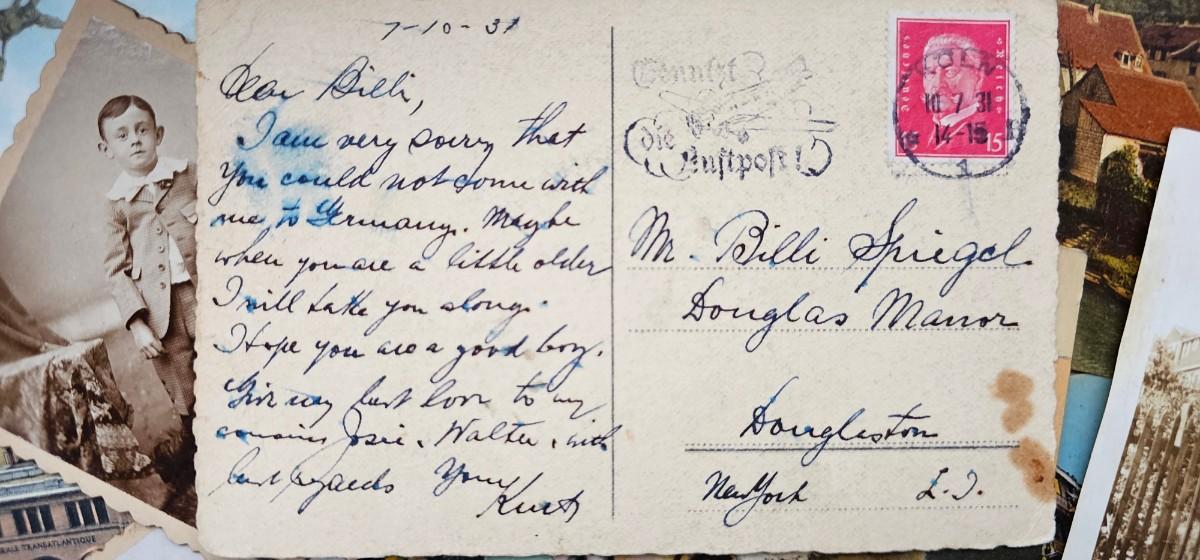 7-10-31
Dear Billi,
I am very sorry that
you could not come with
me to Germany. Maybe
when you are a little older
I will take you along.
I hope you are a good boy.
Give my best love to my
cousins Josie, Walter, with
best regards Your
Kurt
Benützt
die
Luftpost!
Deutsches Reich
15
CÖLN
10.7.31
14-15
1
Mr. Billi Spiegel
Douglas Manor
Douglaston
New York L.I.
RALE TRANSATLANTIQUE